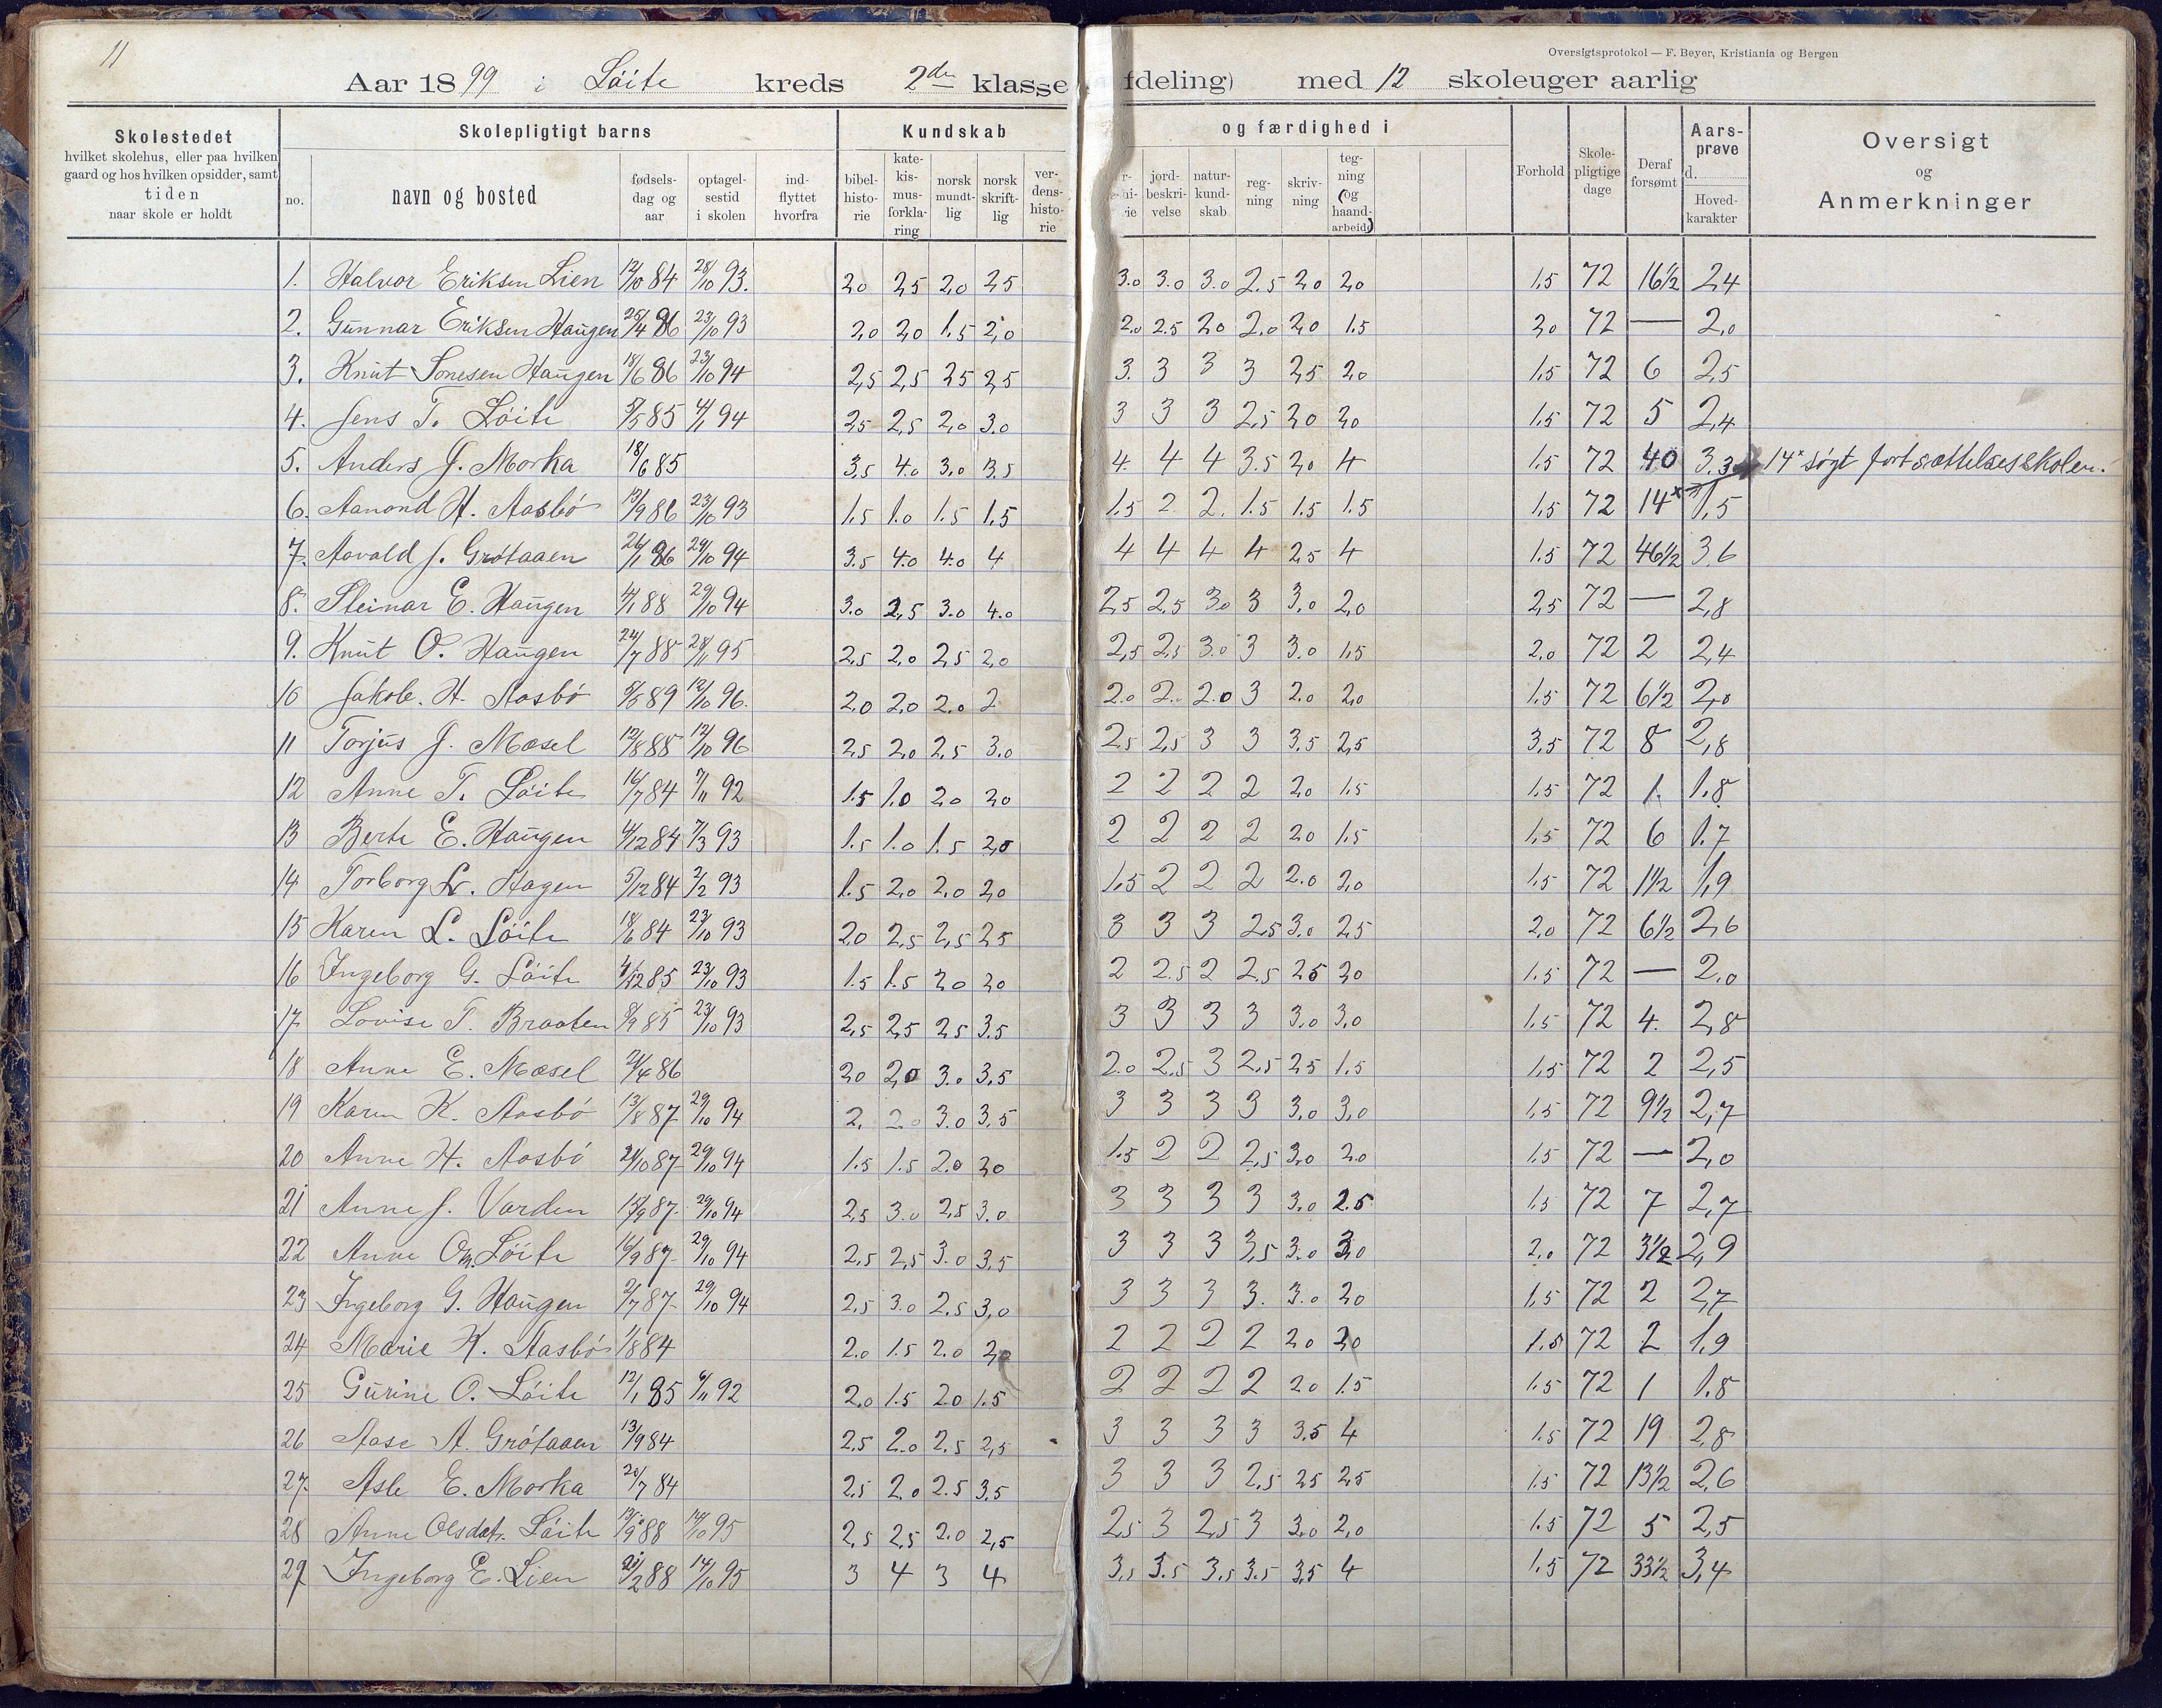 11
Oversigtsprotokol — F. Beyer, Kristiania og Bergen
Aar 1899 i Löite kreds 2den klasse fdeling) med 12 skoleuger aarlig
Skolestedet
hvilket skolehus, eller paa hvilken
gaard og hos hvilken opsidder, samt
tiden
naar skole er holdt
Skolepligtigt barns
no.
navn og bosted
fødsels-
dag og
aar
optagel-
sestid
i skolen
ind-
flyttet
hvorfra
Kundskab
bibel-
histo-
rie
kate-
kis-
mus-
forkla-
ring
norsk
mundt-
lig
norsk
skrift-
lig
ver-
dens-
histo-
rie
og færdighed i
jord-
beskri-
velse
natur-
kund-
skab
reg-
ning
skriv-
ning
teg-
ning
(og
haand-
arbeide)
Forhold
Skole-
pligtige
dage
Deraf
forsømt
Aars-
prøve
d.
Hoved-
karakter
Oversigt
og
Anmerkninger
1. Halvor Eriksen Lien 12/10 84 28/10 93. 2,0 2,5 2,0 2,5 3.0 3.0 3.0 2.5 2,0 2,0 1,5 72 16½ 2,4
2. Gunnar Eriksen Haugen 25/4 86 23/10 93 2,0 2,0 1.5 2,0 2.0 2.5 2,0 2.0 2,0 1.5 2,0 72 — 2,0
3. Knut Tonesen Haugen 18/6 86 23/10 94 2,5 2,5 2,5 2,5 3. 3 3 3 2,5 2,0 1.5 72 6 2,5
4. Jens T. Löite 5/5 85 4/1 94 2,5 2,5 2,0 3.0 3 3 3 2,5 2,0 2,0 1.5 72 5 2,4
5. Anders J. Morka 18/6 85 3,5 4.0 3,0 3,5 4. 4 4 3.5 2,0 4 1.5 72 40 3.3 14x søgt fortsættelsesskolen.
6. Aanond H. Aasbö 13/9 86 23/10 93 1,5 1.0 1.5 1,5 1.5 2 2. 1.5 1.5 1.5 1,5 72 14x 1,5
7. Aavald J. Grötaaen 26/1 86 29/10 94 3.5 4.0 4.0 4 4 4 4 4 2,5 4 1.5 72 46½ 3,6
8. Steinar E. Haugen 4/1 88 29/10 94 3.0 2,5 3.0 4.0 2,5 2,5 3.0 3 3,0 2,0 2,5 72 — 2,8
9. Knut O. Haugen 24/7 88 28/11 95 2,5 2,0 2,5 2,0 2,5 2,5 3.0 3 3.0 1,5 2.0 72 2 2,4
10 Jakob. H. Aasbö 5/5 89 12/10 96. 2,0 2,0 2.0 2 2.0 2. 2.0 3 2.0 2,0 1.5 72 6½ 2,0
11 Torjus J. Mæsel 12/8 88 12/10 96 2,5 2,0 2,5 3.0 2,5 2,5 3 3 3.5 2,5 3,5 72 8 2,8
12 Anne T. Löite 16/7 84 7/11 92 1.5 1.0 2,0 2,0 2 2 2 2 2,0 1.5 1.5 72 1. 1.8
13 Berte E. Haugen 4/12 84 7/3 93 1.5 1.0 1.5 2,0 2 2 2 2 2,0 1.5 1,5 72 6 1.7
14 Torborg Lr. Hagen 5/12 84 2/2 93 1.5 2.0 2.0 2,0 1.5 2 2 2 2.0 2,0 1.5 72 1½ 1,9
15 Karen L. Löite 18/6 84 23/10 93 2,0 2,5 2,5 2,5 3 3 3 2,5 3.0 2,5 2,0 72 6½ 2,6
16 Ingeborg G. Löite 4/12 85 23/10 93 1.5 1.5 2,0 2,0 2 2.5 2 2.5 2,5 2,0 1.5 72 — 2.0
17 Lovise T. Braaten 8/9 85 23/10 93 2,5 2,5 2,5 3.5 3 3 3 3 3.0 3,0 1.5 72 4. 2,8
18 Anne E. Mæsel 24/4 86 2,0 2,0 3.0 3,5 2.0 2,5 3 2,5 2,5 1.5 1,5 72 2 2,5
19 Karen K. Aasbö 13/8 87 29/10 94 2. 2.0 3.0 3,5 3 3 3 3 3,0 3,0 1.5 72 9½ 2,7
20 Anne H. Aasbö 24/10 87 29/10 94 1.5 1.5 2.0 2,0 1.5 2 2 2,5 3,0 2.0 1.5 72 — 2,0
21 Anne J. Varden 15/9 87. 29/10 94 2,5 3.0 2,5 3.0 3 3 3 3 3,0 2.5 1.5 72 7 2,7
22 Anne Om. Löite 16/9 87 29/10 94 2,5 2,5 3.0 3,5 3 3 3 3,5 3.0 3,0 2.0 72 3½ 2,9
23 Ingeborg G. Haugen 2/7 87 29/10 94 2,5 3.0 2,5 3,0 3 3 3 3. 3.0 2,0 1.5 72 2 2,7
24 Marie K. Aasbö 1/8 84 2.0 1.5 2.0 2,0 2 2 2 2 2,0 2,0 1.5 72 2 1,9
25 Gurine O. Löite 12/1 85 6/11 92 2.0 1.5 2.0 1.5 2 2 2 2 2.0 1.5 1.5 72 1 1.8
26 Aase A. Grötaaen 13/9 84 2,5 2.0 2,5 2,5 3 3 3 3 3.5 4 1.5 72 19 2,8
27. Asle E. Morka 20/7 84 2.5 2.0 2.5 3.5 3 3 3 2.5 2,5 2,5 1.5 72 13½ 2,6
28 Anne Olsdat. Löite 13/9 88 14/10 95 2,5 2,5 2.0 2,5 2,5 3 2,5 3 3,0 2,0 1.5 72 5 2,5
29 Ingeborg E. Lien 21/2 88 14/10 95 3 4 3 4 3,5 3.5 3,5 3.5 3,5 4 1.5 72 33½ 3,4